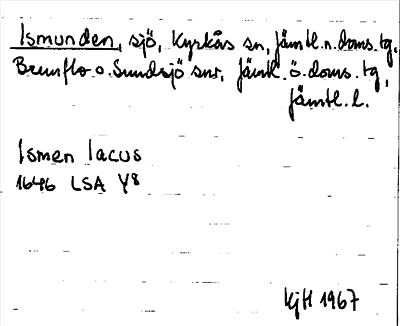 Ismunden, sjö, Kyrkås sn, Jämtl. n. doms. tg,
Brunflo o. Sundsjö snr, Jämtl. ö. doms. tg,
Jämtl. l.
Ismen lacus
1646 LSA Y8
KjH 1967